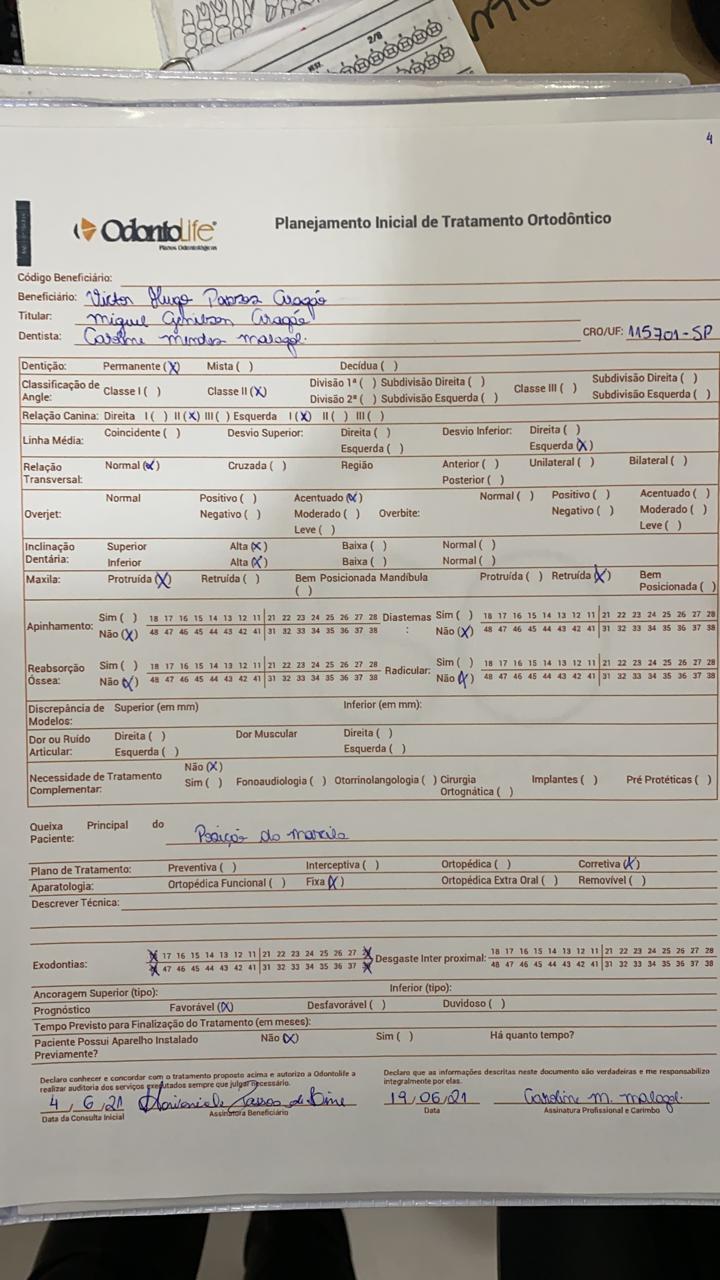 2/8
4
OdontoLife
Planos Odontológicos
Planejamento Inicial de Tratamento Ortodôntico
Código Beneficiário:
Beneficiário: Victor Hugo Passos Aragão
Titular: Miguel Aragão
Dentista: Caroline Mendes Malagol. CRO/UF: 115701-SP
Dentição: Permanente (X) Mista ( ) Decídua ( )
Classificação de Angle: Classe I ( ) Classe II (X) Divisão 1ª ( ) Subdivisão Direita ( ) Classe III ( ) Subdivisão Direita ( )
Divisão 2ª ( ) Subdivisão Esquerda ( ) Subdivisão Esquerda ( )
Relação Canina: Direita I ( ) II (X) III ( ) Esquerda I (X) II ( ) III ( )
Linha Média: Coincidente ( ) Desvio Superior: Direita ( ) Desvio Inferior: Direita ( )
Esquerda ( ) Esquerda (X)
Relação Transversal: Normal (X) Cruzada ( ) Região Anterior ( ) Unilateral ( ) Bilateral ( )
Posterior ( )
Overjet: Normal Positivo ( ) Acentuado (X) Overbite: Normal ( ) Positivo ( ) Acentuado ( )
Negativo ( ) Moderado ( ) Negativo ( ) Moderado ( )
Leve ( ) Leve ( )
Inclinação Dentária: Superior Alta (X) Baixa ( ) Normal ( )
Inferior Alta (X) Baixa ( ) Normal ( )
Maxila: Protruída (X) Retruída ( ) Bem Posicionada ( ) Mandíbula Protruída ( ) Retruída (X) Bem Posicionada ( )
Apinhamento: Sim ( ) 18 17 16 15 14 13 12 11 21 22 23 24 25 26 27 28 Diastemas: Sim ( ) 18 17 16 15 14 13 12 11 21 22 23 24 25 26 27 28
Não (X) 48 47 46 45 44 43 42 41 31 32 33 34 35 36 37 38 Não (X) 48 47 46 45 44 43 42 41 31 32 33 34 35 36 37 38
Reabsorção Óssea: Sim ( ) 18 17 16 15 14 13 12 11 21 22 23 24 25 26 27 28 Radicular: Sim ( ) 18 17 16 15 14 13 12 11 21 22 23 24 25 26 27 28
Não (X) 48 47 46 45 44 43 42 41 31 32 33 34 35 36 37 38 Não (X) 48 47 46 45 44 43 42 41 31 32 33 34 35 36 37 38
Discrepância de Modelos: Superior (em mm) Inferior (em mm):
Dor ou Ruído Articular: Direita ( ) Dor Muscular Direita ( )
Esquerda ( ) Esquerda ( )
Necessidade de Tratamento Complementar: Não (X)
Sim ( ) Fonoaudiologia ( ) Otorrinolangologia ( ) Cirurgia Ortognática ( ) Implantes ( ) Pré Protéticas ( )
Queixa Principal do Paciente: Posição da maxila
Plano de Tratamento: Preventiva ( ) Interceptiva ( ) Ortopédica ( ) Corretiva (X)
Aparatologia: Ortopédica Funcional ( ) Fixa (X) Ortopédica Extra Oral ( ) Removível ( )
Descrever Técnica:
Exodontias: X 17 16 15 14 13 12 11 21 22 23 24 25 26 27 X Desgaste Inter proximal: 18 17 16 15 14 13 12 11 21 22 23 24 25 26 27 28
X 47 46 45 44 43 42 41 31 32 33 34 35 36 37 X 48 47 46 45 44 43 42 41 31 32 33 34 35 36 37 38
Ancoragem Superior (tipo): Inferior (tipo):
Prognóstico Favorável (X) Desfavorável ( ) Duvidoso ( )
Tempo Previsto para Finalização do Tratamento (em meses):
Paciente Possui Aparelho Instalado Previamente? Não (X) Sim ( ) Há quanto tempo?
Declaro conhecer e concordar com o tratamento proposto acima e autorizo a Odontolife a
realizar auditoria dos serviços executados sempre que julgar necessário.
Declaro que as informações descritas neste documento são verdadeiras e me responsabilizo
integralmente por elas.
4, 6, 21 Passos de 19,06,21 Caroline M. Malagol.
Data da Consulta Inicial Assinatura Beneficiário Data Assinatura Profissional e Carimbo